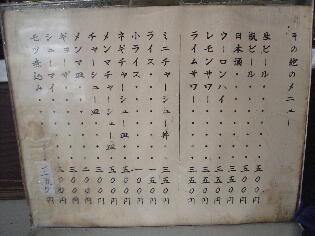 その他のメニュー
生ビール・・・・・五〇〇円
瓶ビール・・・・・五五〇円
日本酒・・・・・・
ウーロンハイ・・・三五〇円
レモンサワー・・・三五〇円
ライムサワー・・・三五〇円
ミニチャーシュー丼・・三五〇円
ライス・・・・・・一五〇円
小ライス・・・・・一〇〇円
ネギチャーシュー皿・・五〇〇円
メンマチャーシュー皿・・
チャーシュー皿・・・
メンマ皿・・・・・二〇〇円
ギョーザ・・・・・
シューマイ・・・・
モツ煮込み・・・・